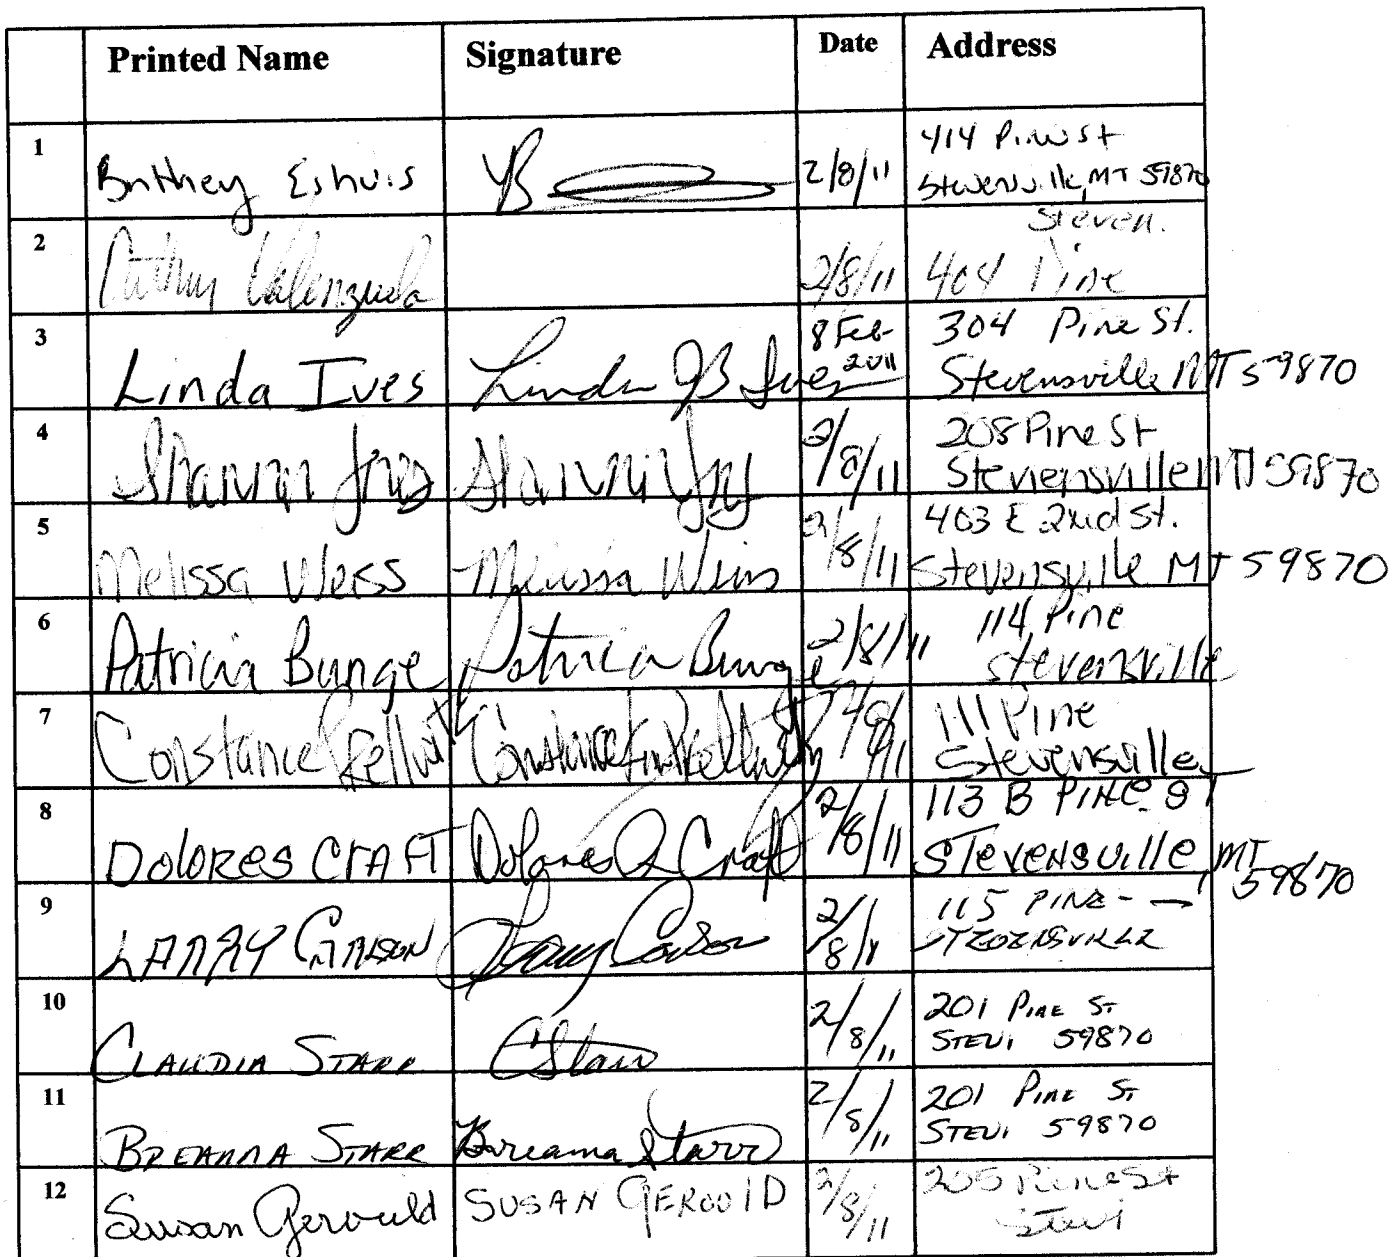 Printed Name Signature Date Address
1 Brittney Eshuis 2/8/11 414 Pine St
Stevensville, MT 59870
2 Cathy Valenzuela 2/8/11 404 Pine
Steven.
3 Linda Ives Linda JB Ives 8 Feb 2011 304 Pine St.
Stevensville MT 59870
4 Shannon 2/8/11 208 Pine St
Stevensville MT 59870
5 Melissa Weiss Melissa Weiss 2/8/11 403 E 2nd St.
Stevensville MT 59870
6 Patricia Bunge Patricia Bunge 2/8/11 114 Pine
Stevensville
7 Constance Constance 2/8/11 111 Pine
Stevensville
8 DOLORES CRAFT Dolores Craft 2/8/11 113 B PINE ST
STEVENSVILLE, MT
59870
9 LARRY CARLSON Larry 2/8/11 115 PINE -
STEVENSVILLE
10 CLAUDIA STARR C Starr 2/8/11 201 PINE ST
STEVI 59870
11 BREANNA STARR Breanna Starr 2/8/11 201 PINE ST
STEVI 59870
12 Susan Gerould SUSAN GEROULD 2/8/11 205 Pine St
Stevi